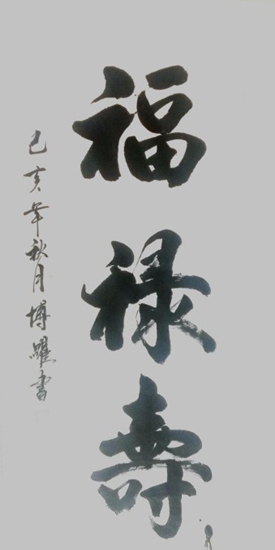 福禄壽
己亥年秋月博耀書